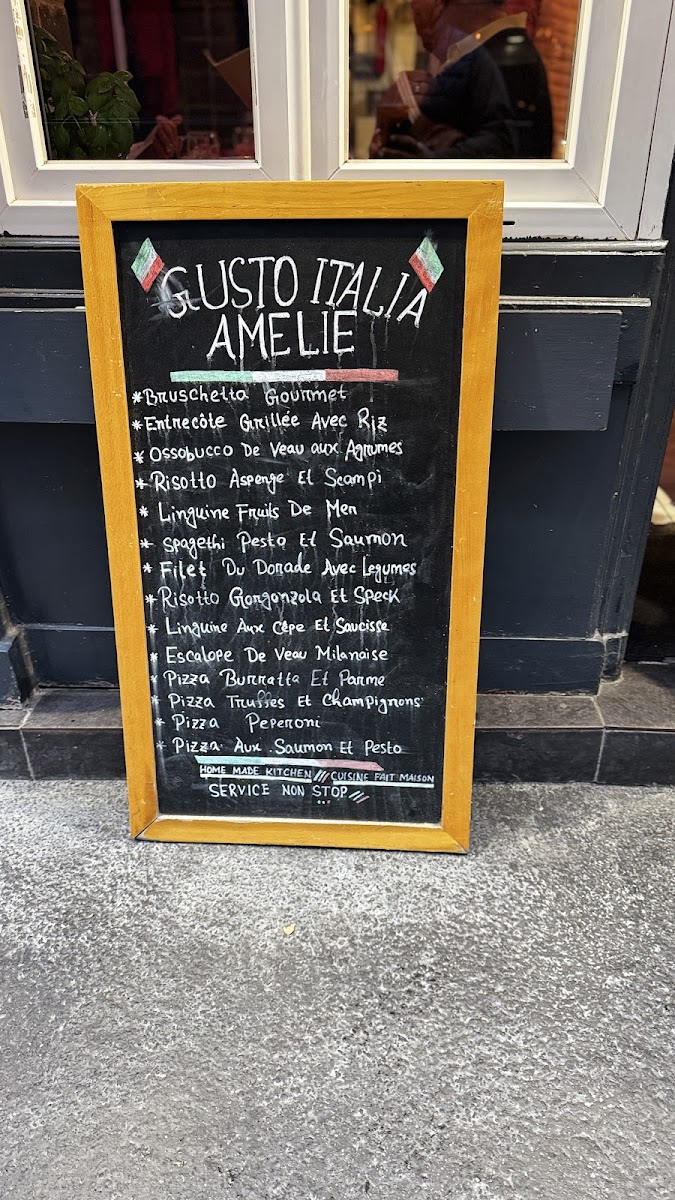 GUSTO ITALIA
AMELIE
*Bruschetta Gourmet
*Entrecôte Grillée Avec Riz
*Ossobucco De Veau aux Agrumes
*Risotto Asperge Et Scampi
* Linguine Fruits De Mer
* Spagethi Pesto Et Saumon
* Filet Du Dorade Avec Legumes
*Risotto Gorgonzola Et Speck
* Linguine Aux Cêpe Et Saucisse
* Escalope De Veau Milanaise
* Pizza Burratta Et Parme
* Pizza Truffes Et Champignons
* Pizza Peperoni
* Pizza Aux Saumon Et Pesto
HOME MADE KITCHEN /// CUISINE FAIT MAISON
SERVICE NON STOP...